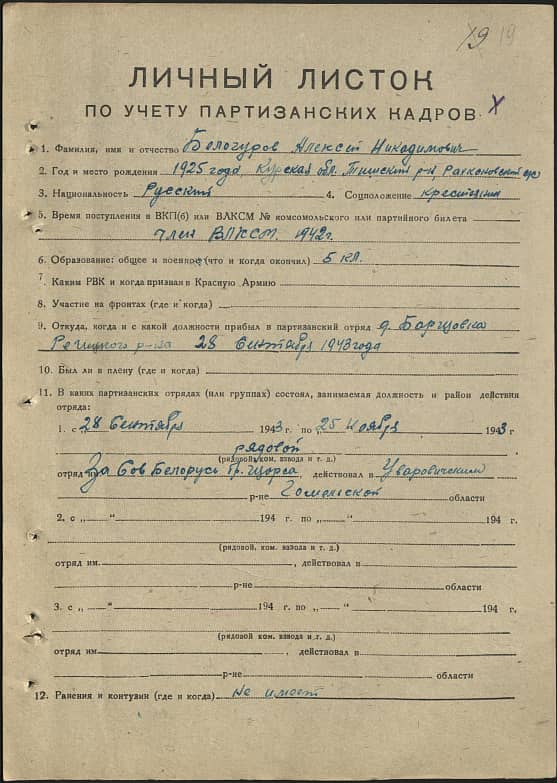 19 19
ЛИЧНЫЙ ЛИСТОК
ПО УЧЕТУ ПАРТИЗАНСКИХ КАДРОВ
1. Фамилия, имя и отчество Белогуров Алексей Никодимович
2. Год и место рождения 1925 года, Курская обл. Тимский р-н,
3. Национальность Русский 4. Соцположение крестьянин
5. Время поступления в ВКП(б) или ВЛКСМ № комсомольского или партийного билета
член ВЛКСМ. 1942г.
6. Образование: общее и военное (что и когда окончил) 5 кл.
7. Каким РВК и когда призван в Красную Армию
8. Участие на фронтах (где и когда)
9. Откуда, когда и с какой должности прибыл в партизанский отряд д. Борщовка
Речицкого р-на 28 Сентября 1943 года
10. Был ли в плену (где и когда)
11. В каких партизанских отрядах (или группах) состоял, занимаемая должность и район действия
отряда:
1. с 28 Сентября 1943 г. по „25 Ноября 1943 г
рядовой
(рядовой, ком. взвода и т. д.)
отряд им. За Сов Белорусь бр. Щорса, действовал в Уваровическом
р-не Гомельской области
2. с „ “ 194 г. по „ “ 194 г.
(рядовой, ком. взвода и т. д.)
отряд им. , действовал в
р-не области
3. с „ “ 194 г. по „ “ 194 г.
(рядовой, ком. взвода и т. д.)
отряд им. , действовал в
р-не области
12. Ранения и контузии (где и когда) Не имеет